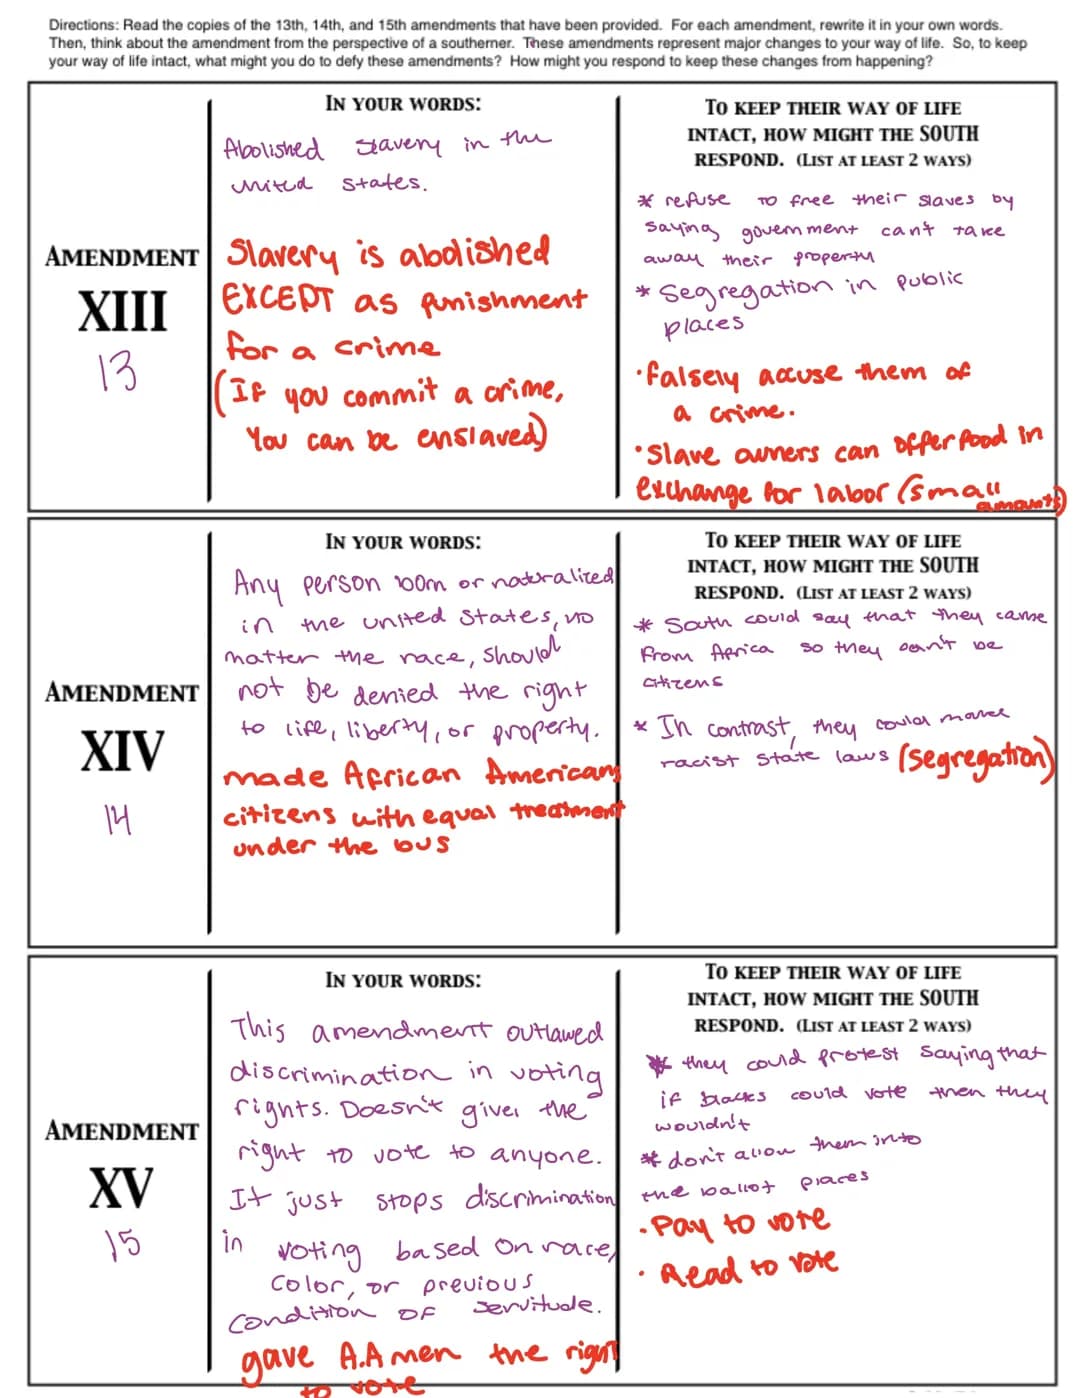 Directions: Read the copies of the 13th, 14th, and 15th amendments that have been provided.  For each amendment, rewrite it in your own words.
Then, think about the amendment from the perspective of a southerner.  These amendments represent major changes to your way of life.  So, to keep
your way of life intact, what might you do to defy these amendments?  How might you respond to keep these changes from happening?
AMENDMENT
XIII
13
IN YOUR WORDS:
Abolished slavery in the
united states.
Slavery is abolished
EXCEPT as punishment
for a crime
(If you commit a crime,
You can be enslaved)
TO KEEP THEIR WAY OF LIFE
INTACT, HOW MIGHT THE SOUTH
RESPOND.  (LIST AT LEAST 2 WAYS)
* refuse to free their slaves by
saying government can't take
away their property
* Segregation in public
places
• falsely accuse them of
a crime.
• Slave owners can offer food in
exchange for labor (small
amounts)
AMENDMENT
XIV
14
IN YOUR WORDS:
Any person born or naturalized
in the united states, no
matter the race, should
not be denied the right
to life, liberty, or property.
made African Americans
citizens with equal treatment
under the
TO KEEP THEIR WAY OF LIFE
INTACT, HOW MIGHT THE SOUTH
RESPOND.  (LIST AT LEAST 2 WAYS)
* South could say that they came
from Africa so they can't be
citizens
* In contrast, they could make
racist state laws (segregation)
AMENDMENT
XV
15
IN YOUR WORDS:
This amendment outlawed
discrimination in voting
rights. Doesn't give the
right to vote to anyone.
It just stops discrimination
in voting based on race,
color, or previous
condition of servitude.
gave A.A men the right
to vote
TO KEEP THEIR WAY OF LIFE
INTACT, HOW MIGHT THE SOUTH
RESPOND.  (LIST AT LEAST 2 WAYS)
* they could protest saying that
if blacks could vote then they
wouldn't
* don't allow them into
the ballot places
• Pay to vote
• Read to vote